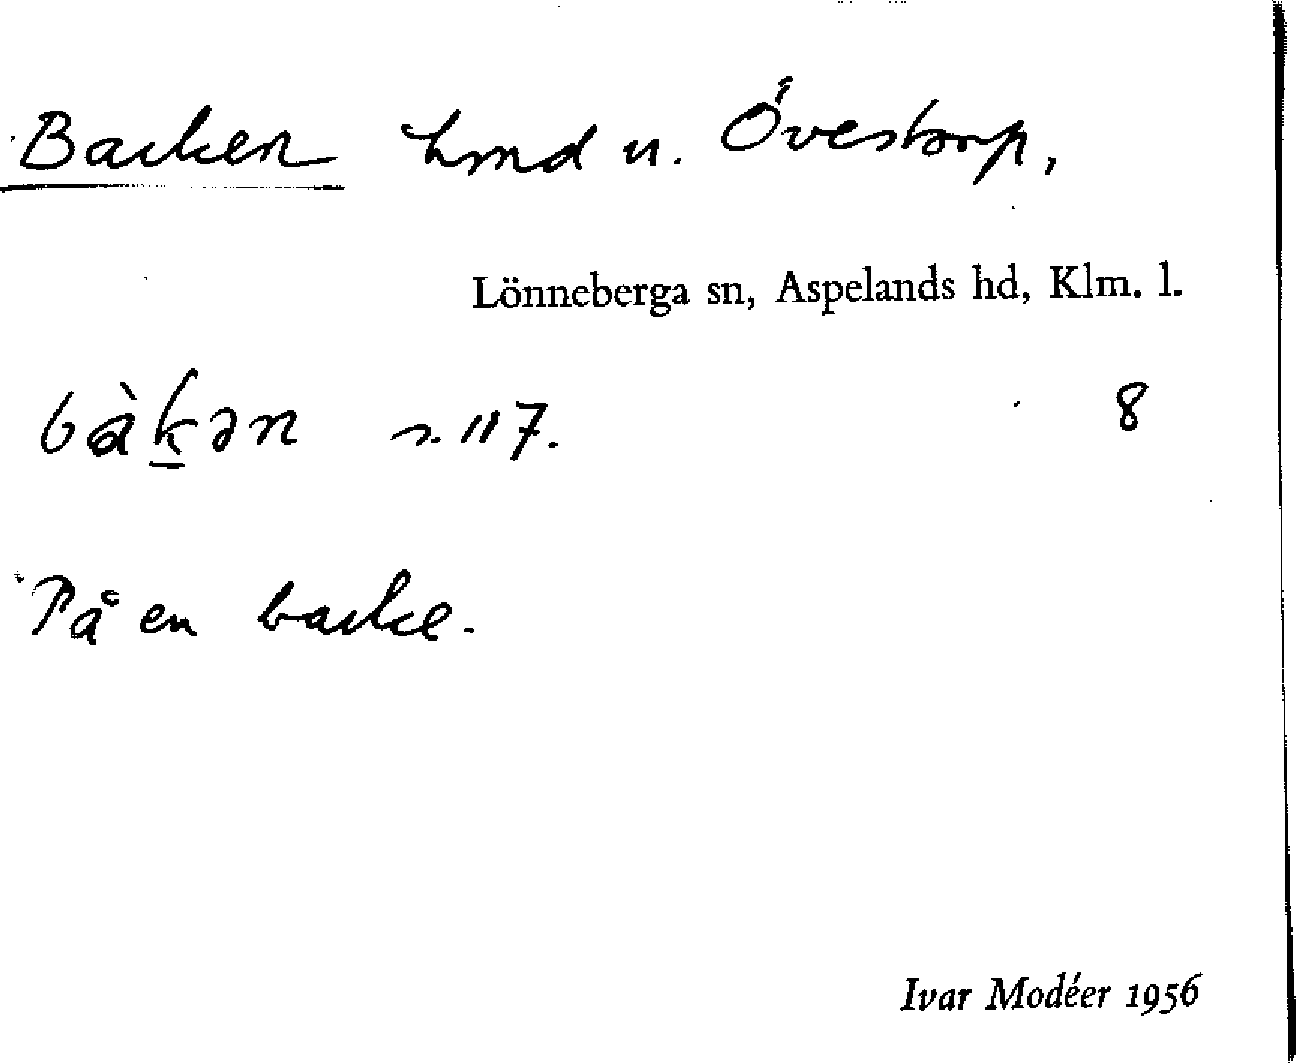 Backen hmd u. Övestorp,
Lönneberga sn, Aspelands hd, Klm. l.
bàk̲ən s. 117. 8
På en backe.
Ivar Modéer 1956